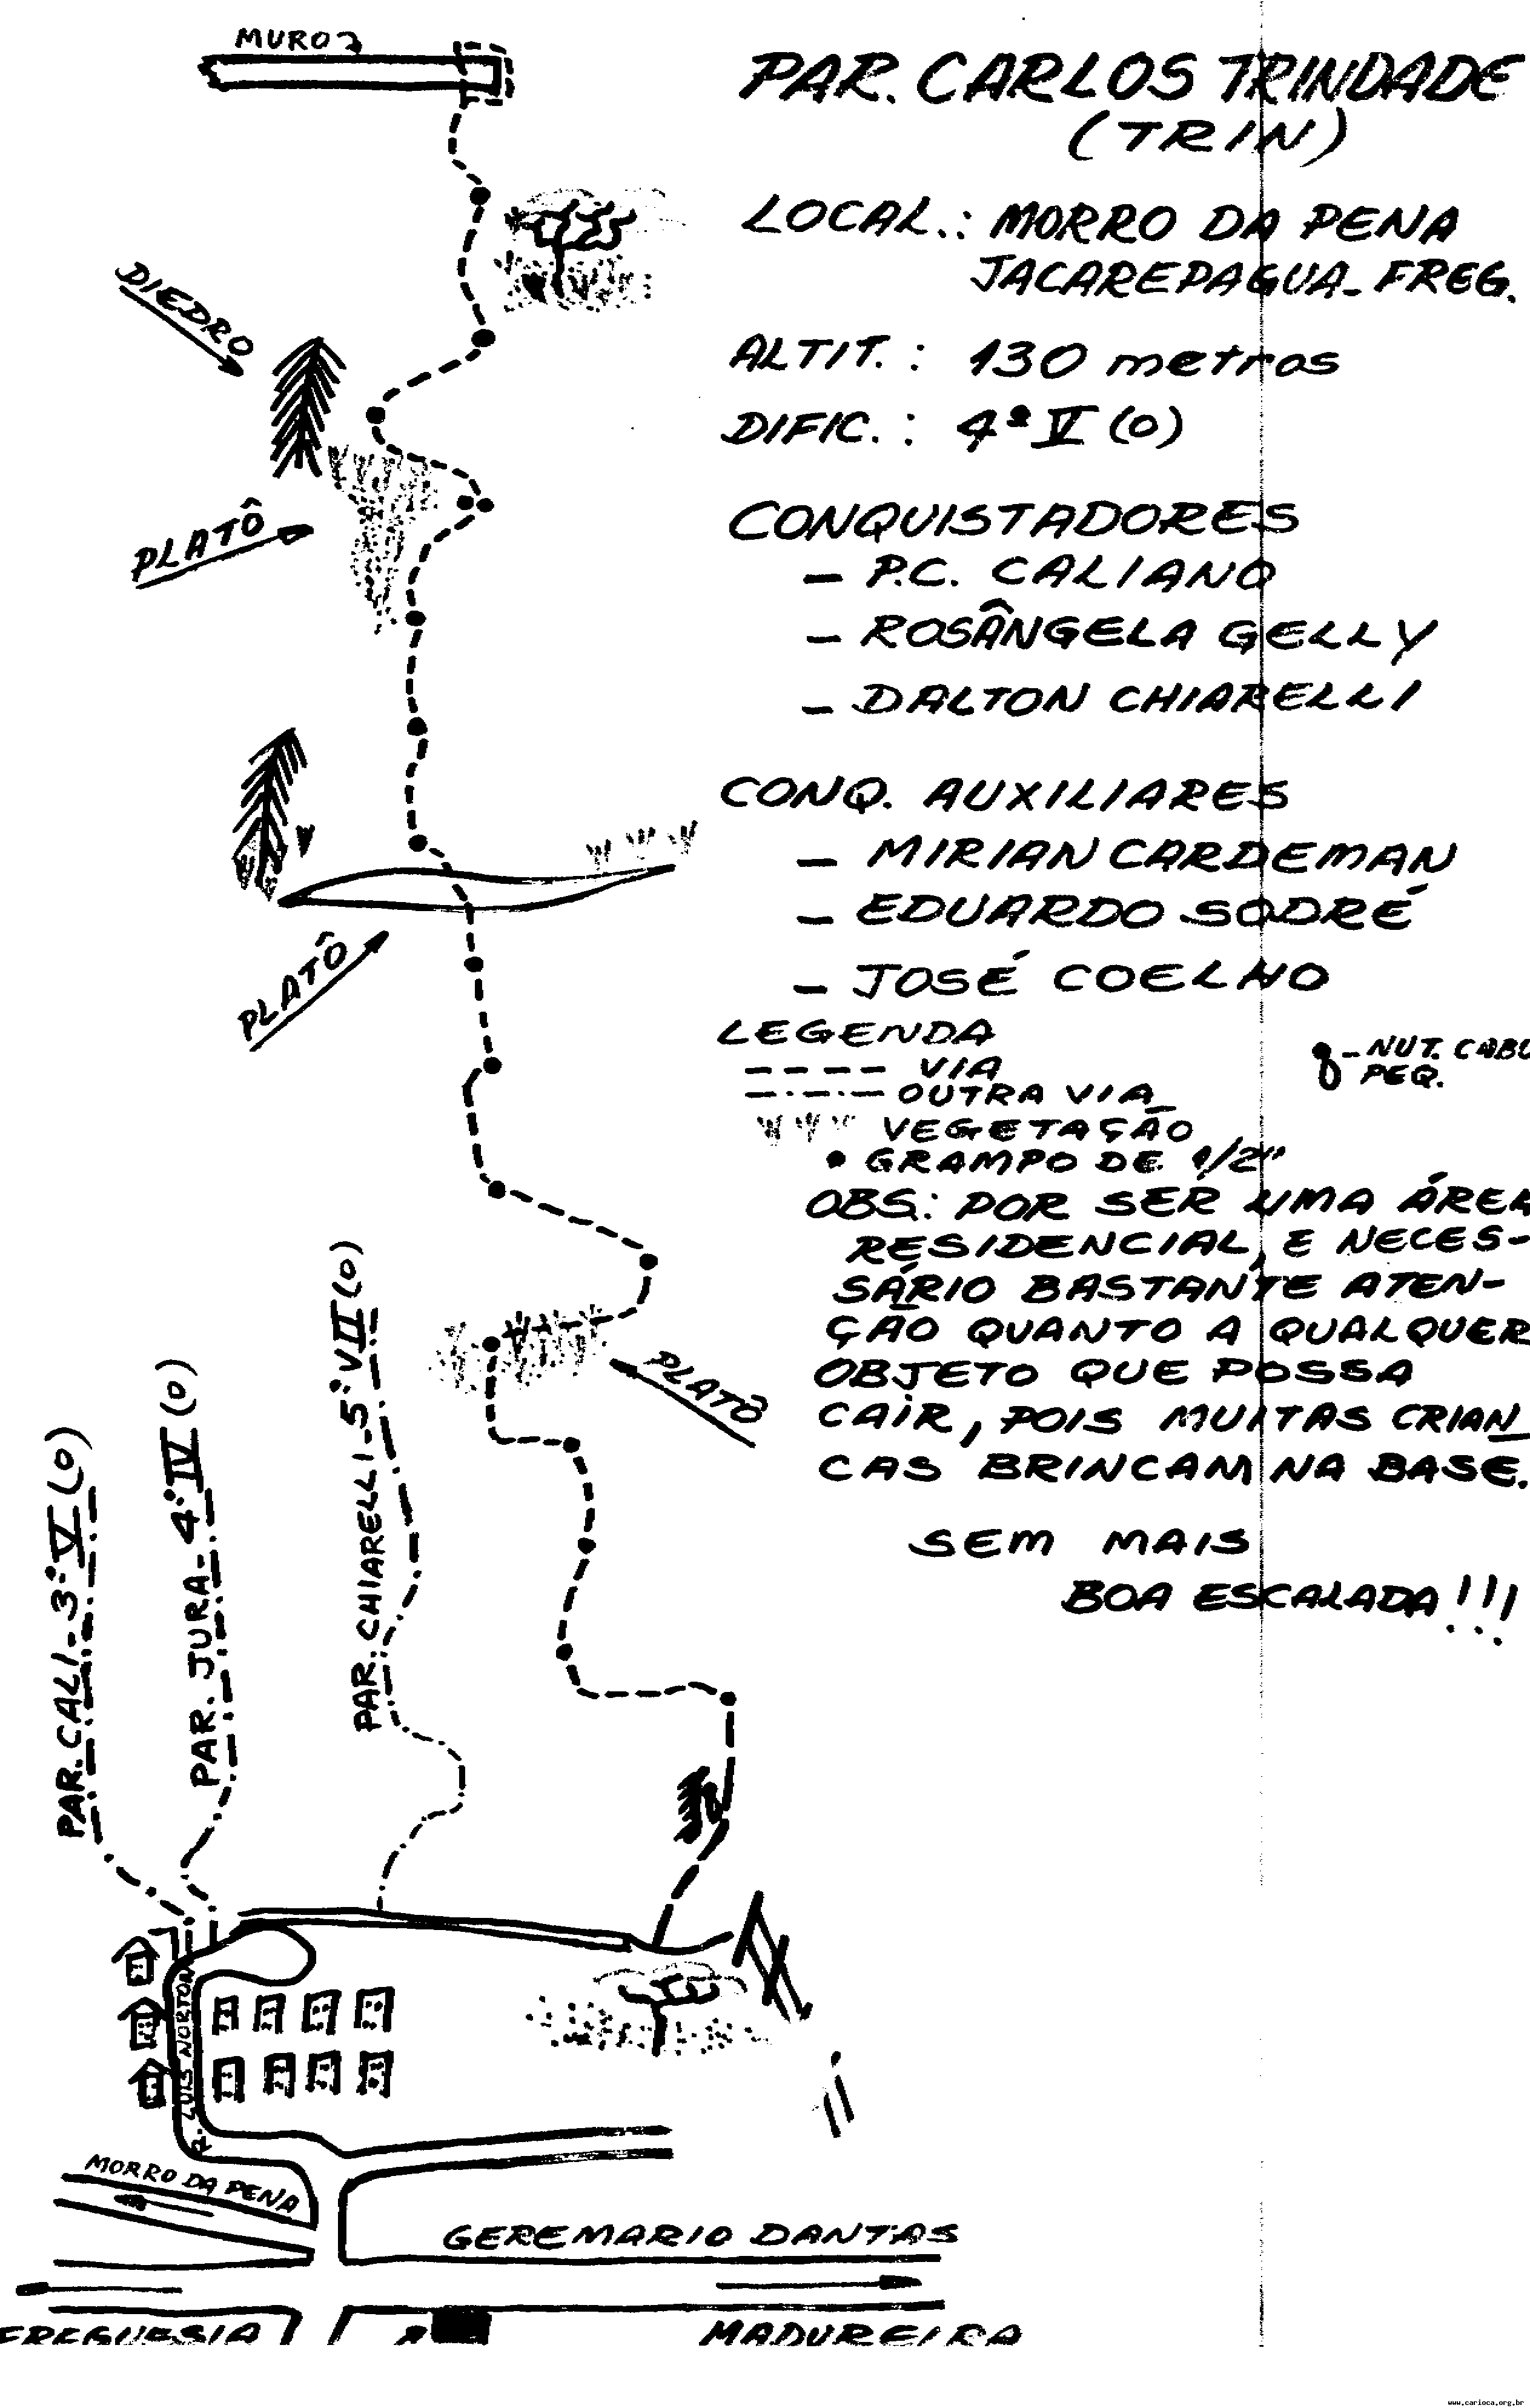 MURO
PAR. CARLOS TRINDADE
(TRIN)
LOCAL.: MORRO DA PENA
JACAREPAGUA - FREG.
DIEDRO
ALTIT. : 130 metros
DIFIC. : 4º V (0)
PLATÔ
CONQUISTADORES
- P.C. CALIANO
- ROSÂNGELA GELLY
- DALTON CHIARELLI
CONQ. AUXILIARES
- MIRIAN CARDEMAN
- EDUARDO SODRÉ
- JOSÉ COELHO
PLATÔ
LEGENDA
VIA
OUTRA VIA
VEGETAÇÃO
GRAMPO DE 1/2"
- NUT. CABO
PEQ.
OBS.: POR SER UMA ÁREA
RESIDENCIAL, E NECES-
SÁRIO BASTANTE ATEN-
ÇÃO QUANTO A QUALQUER
OBJETO QUE POSSA
CAIR, POIS MUITAS CRIAN
CAS BRINCAM NA BASE.
SEM MAIS
BOA ESCALADA!!!
PLATÔ
PAR. CALI - 3º V (0)
PAR. JURA - 4º IV (0)
PAR. CHIARELLI - 5º VII (0)
R. LUIS NORTON
MORRO DA PENA
GEREMARIO DANTAS
FREGUESIA
MADUREIRA
www.carioca.org.br